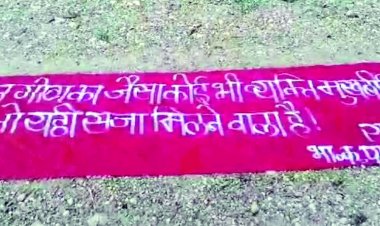 जैसा कोई भी व्यक्ति मुखबी
तो यही सजा मिलने वाला है!
भा.क.पा